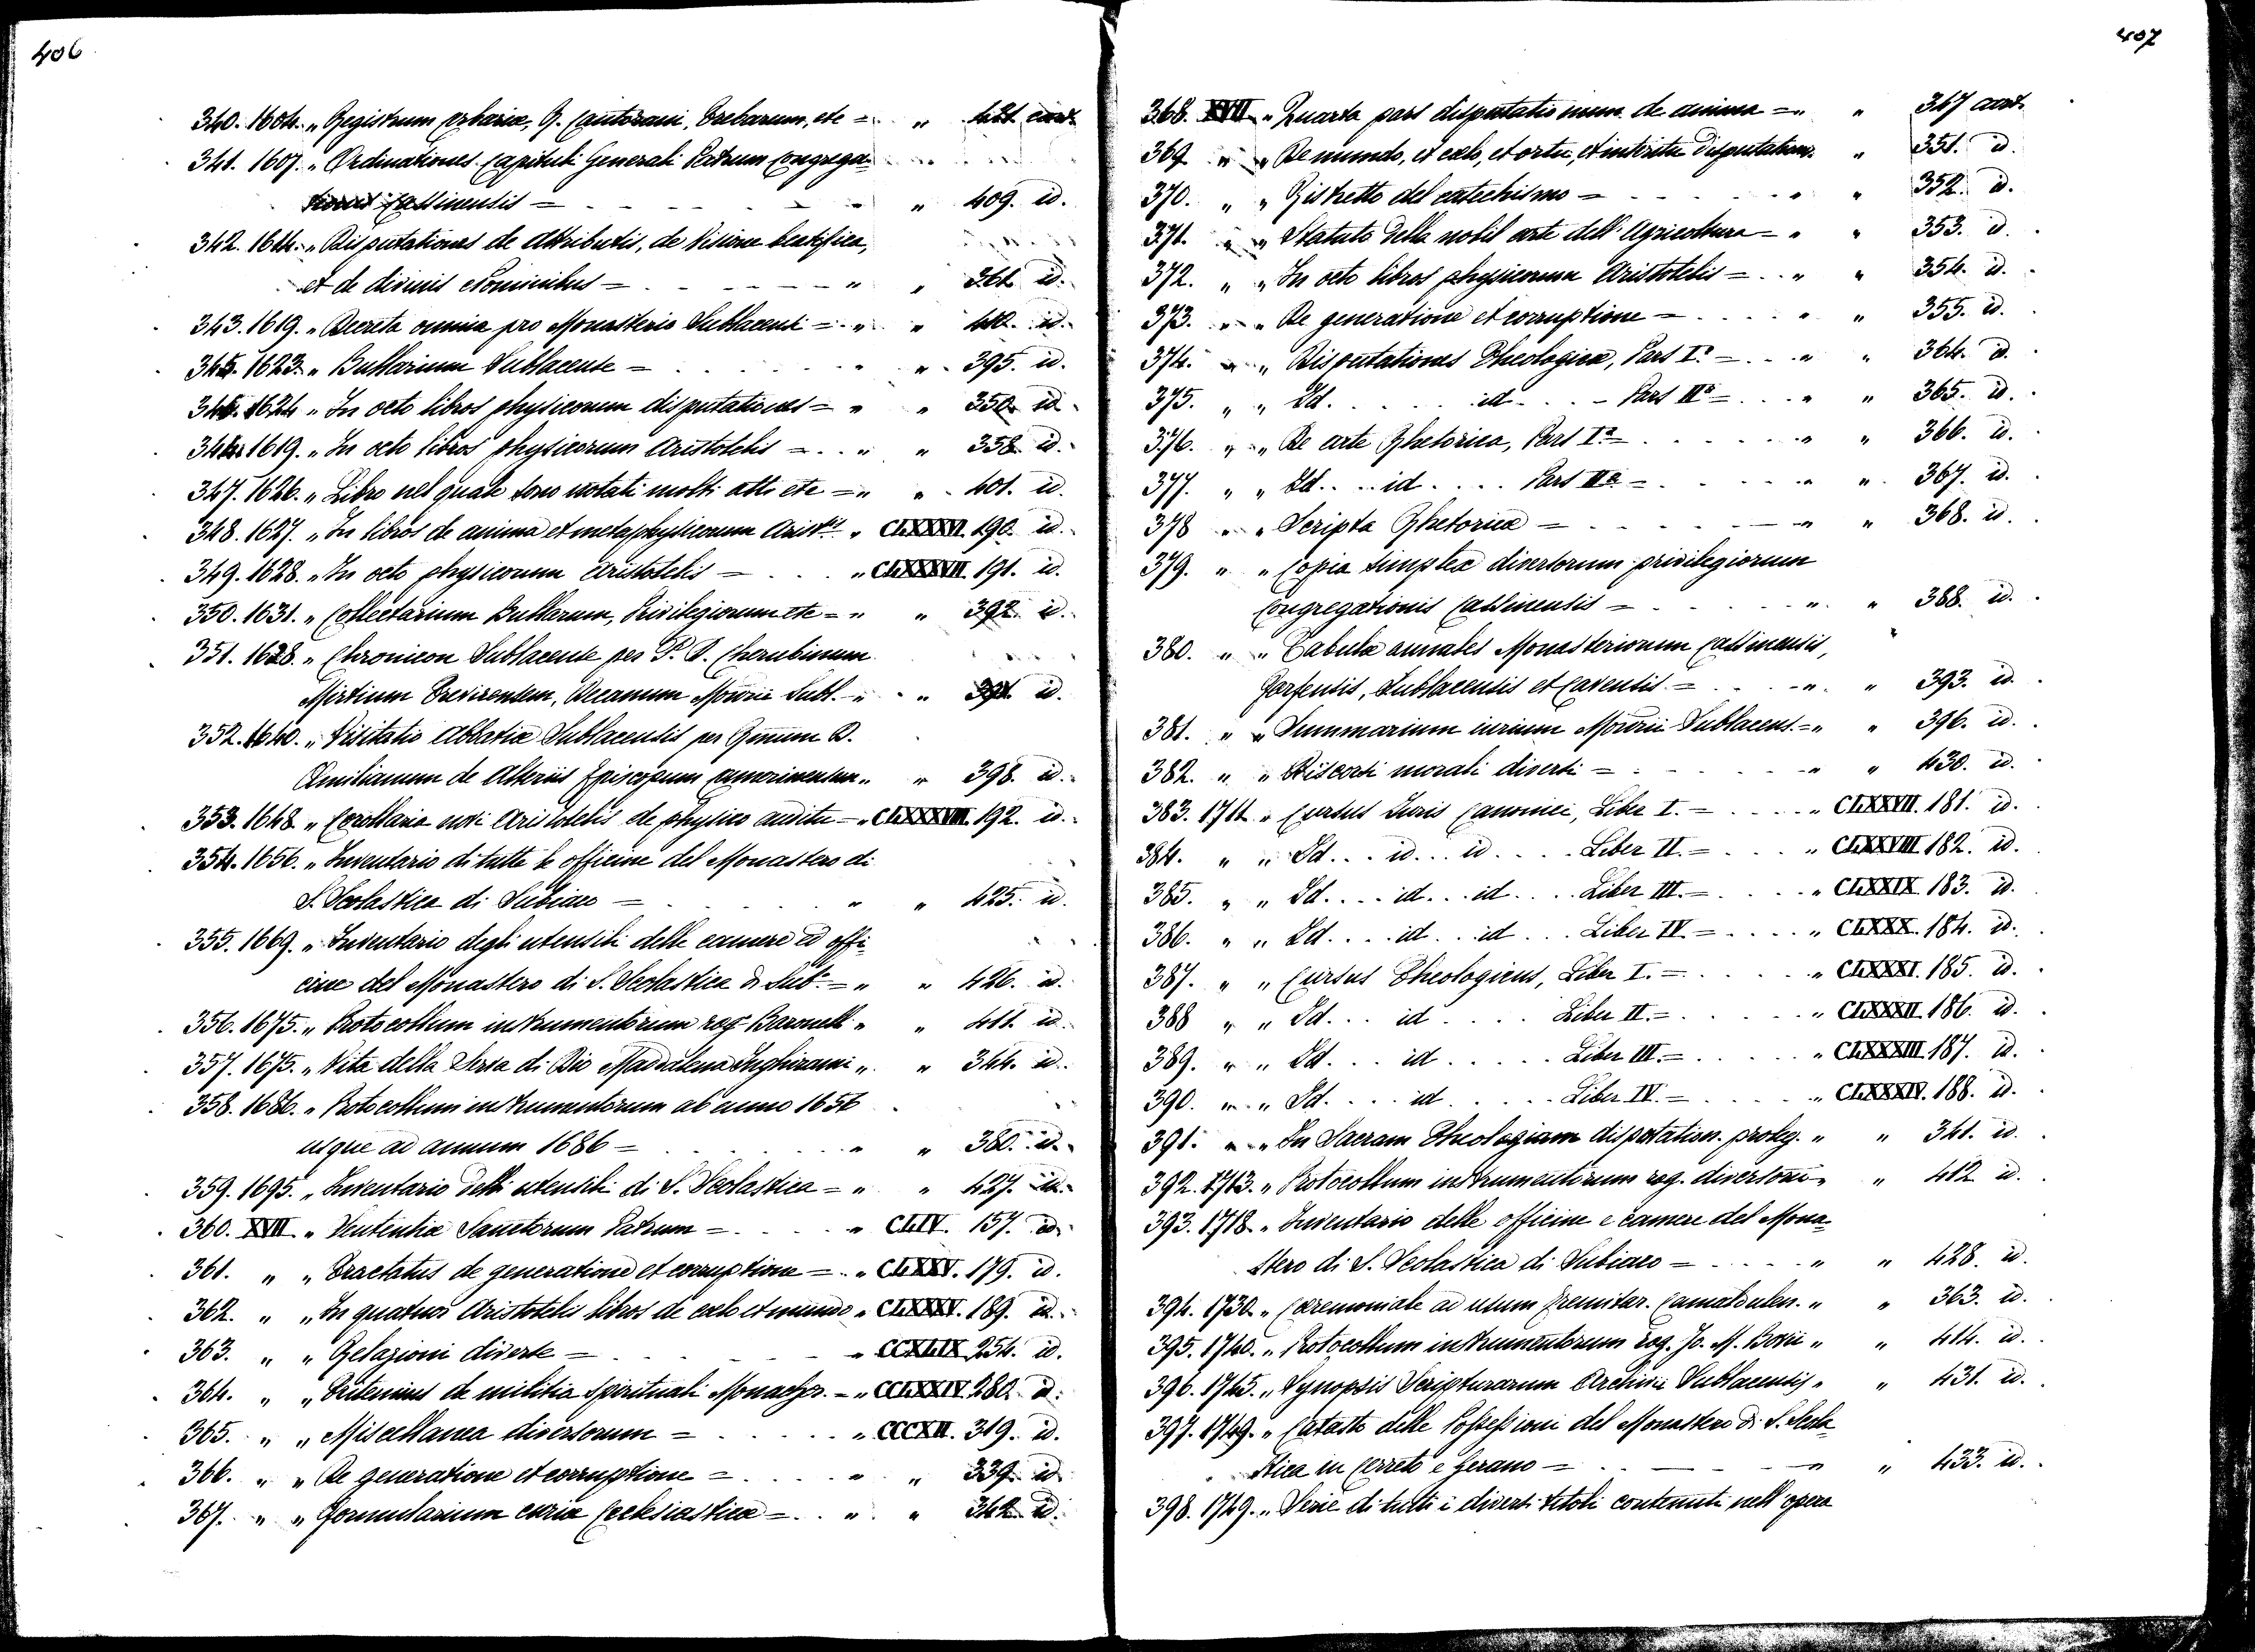 406
340. 1604. „ Registrum Urbariæ, G. Cantorani, Trebarum, etc = „ 421 cart.
341. 1607. „ Ordinationes Capituli Generali Patrum Congrega-
tionis Cassinensis = „ 409. id.
342. 1614. „ Disputationes de Attributis, de Visione beatifica,
et de divinis Nominibus = „ „ 361. id.
343. 1619. „ Decreta omnia pro Monasterio Sublacensi = „ „ 410. id.
345. 1623. „ Bullarium Sublacense = „ „ 395. id.
346. 1624 „ In octo libros physicorum disputationes = „ „ 350. id.
344. 1619. „ In octo libros physicorum Aristotelis = „ „ 358. id.
347. 1626. „ Libro nel quale sono notati molti atti etc = „ „ 401. id.
348. 1627. „ In libros de anima et metaphysicorum Aristlis „ CLXXXVI. 190. id.
349. 1628. „ In octo physicorum Aristotelis = „ CLXXXVII. 191. id.
350. 1631. „ Collectarium Bullarum, Privilegiorum etc = „ „ 392. id.
351. 1628. „ Chronicon Sublacense per P. D. Cherubinum
Mirtium Trevirensem, Decanum Mon̄rii Subl. „ „ 391. id.
352. 1640. „ Visitatio Abbatiæ Sublacensis per D.
Æmilianum de Alteriis Episcopum Camerinensem „ „ 398. id.
353. 1648. „ Corollaria novi Aristotelis de physico auditu = „ CLXXXVIII. 192. id.
354. 1656. „ Inventario di tutte le officine del Monastero di
S. Scolastica di Subiaco = „ „ 425. id.
355. 1669. „ Inventario degli utensili delle camere ed offi-
cine del Monastero di S. Scolastica di Sub.o = „ „ 426. id.
356. 1675. „ Protocollum instrumentorum rog. Baronell „ „ 411. id.
357. 1675. „ Vita della Serva di Dio Maddalena Inghirami „ „ 344. id.
358. 1686. „ Protocollum instrumentorum ab anno 1656
usque ad annum 1686 = „ „ 380. id.
359. 1695. „ Inventario delli utensili di S. Scolastica = „ „ 427. id.
360. XVII „ Sententiæ Sanctorum Patrum = „ CLIV. 157. id.
361. „ „ Tractatus de generatione et corruptione = „ CLXXV. 179. id.
362. „ „ In quatuor Aristotelis libros de cœlo et mundo „ CLXXXV. 189. id.
363. „ „ Relazioni diverse = „ CCXLIX. 254. id.
364. „ „ Tritemius de militia spirituali Monachor. = „ CCLXXIV. 280. id.
365. „ „ Miscellanea diversorum = „ CCCXII. 319. id.
366. „ „ De generatione et corruptione = „ „ 339. id.
367. „ „ Formularium curiæ Ecclesiasticæ = „ „ 342. id.
407
368. XVII „ Quarta pars disputationum de anima = „ „ 347 cart.
369. „ „ De mundo, et cœlo, et ortu, et interitu Disputation. „ 351. id.
370. „ „ Ristretto del catechismo = „ „ 352. id.
371. „ „ Statuto della nobil arte dell' Agricoltura = „ „ 353. id.
372. „ „ In octo libros physicorum Aristotelis = „ „ 354. id.
373. „ „ De generatione et corruptione = „ „ 355. id.
374. „ „ Disputationes Theologicæ, Pars I.a = „ „ 364. id.
375. „ „ Id. . . . . . id . . . Pars II.a = „ „ 365. id.
376. „ „ De arte Rhetorica, Pars I.a = „ „ 366. id.
377. „ „ Id. . . . id . . . . Pars II.a = „ „ 367. id.
378 „ „ Scripta Rhetoricæ = „ „ 368. id.
379. „ „ Copia simplex diversorum privilegiorum
Congregationis Cassinensis = „ „ 388. id.
380. „ „ Tabulæ annales Monasteriorum Cassinensis,
Farfensis, Sublacensis et Cavensis = „ „ 393. id.
381. „ „ Summarium iurium Mon̄rii Sublacens. = „ „ 396. id.
382. „ „ Discorsi morali diversi = „ „ 430. id.
383. 1711. „ Cursus Iuris Canonici, Liber I. = „ CLXXVII. 181. id.
384. „ „ Id. . . id . . id . . . . Liber II. = „ CLXXVIII. 182. id.
385. „ „ Id. . . . id . . . id . . . . Liber III. = „ CLXXIX. 183. id.
386. „ „ Id. . . . id . . id . . . Liber IV. = „ CLXXX. 184. id.
387. „ „ Cursus Theologicus, Liber I. = „ CLXXXI. 185. id.
388 „ „ Id. . . id . . . . Liber II. = „ CLXXXII. 186. id.
389. „ „ Id. . . id . . . . . Liber III. = „ CLXXXIII. 187. id.
390. „ „ Id. . . . id . . . . . Liber IV. = „ CLXXXIV. 188. id.
391. „ „ In Sacram Theologiam disputation. proleg. „ „ 341. id.
392. 1713. „ Protocollum instrumentorum rog. diversorū „ „ 412 id.
393. 1718. „ Inventario delle officine e camere del Mona-
stero di S. Scolastica di Subiaco = „ „ 428. id.
394. 1730. „ Cœremoniale ad usum Eremitar. Camaldulen. „ „ 363. id.
395. 1740. „ Protocollum instrumentorum rog. Jo. M. „ „ 414. id.
396. 1745. „ Synopsis Scripturarum Archivii Sublacensis „ „ 431. id.
397. 1749. „ Catasto delle Possessioni del Monastero di S. Scola-
stica in Cerreto e Gerano = „ „ 433. id.
398. 1749. „ Serie di tutti i diversi titoli contenuti nell' opera